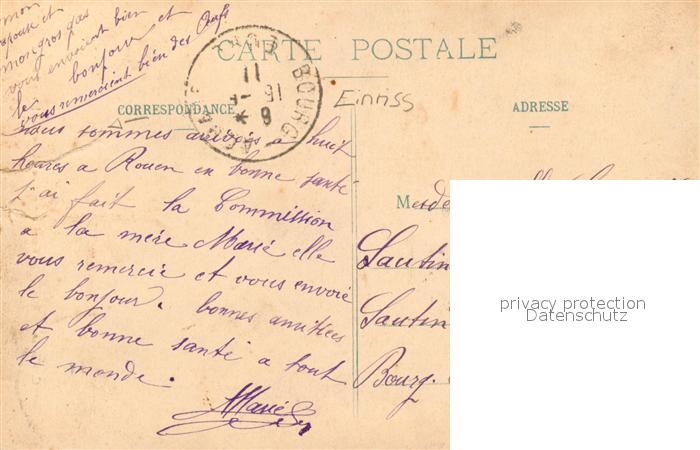 mon
epoux et
mon gros gas
vous envoient bien
le bonjour et
vous remercient bien des Oeufs
CARTE POSTALE
CORRESPONDANCE
ADRESSE
BOURG
11
15
8
Einriss
nous sommes arrivés a huit
heures a Rouen en bonne santé
j'ai fait la Commission
a la mère Marie elle
vous remercie et vous envoie
le bonjour. bonnes amitiées
et bonne santé a tout
le monde.
Marie
Sautin
Sautin
Bourg
privacy protection
Datenschutz